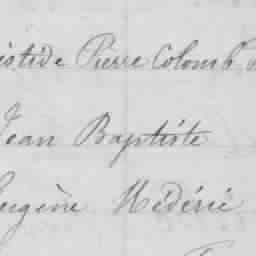 istide Pierre Colomb
Jean Baptiste
Eugène Médéric